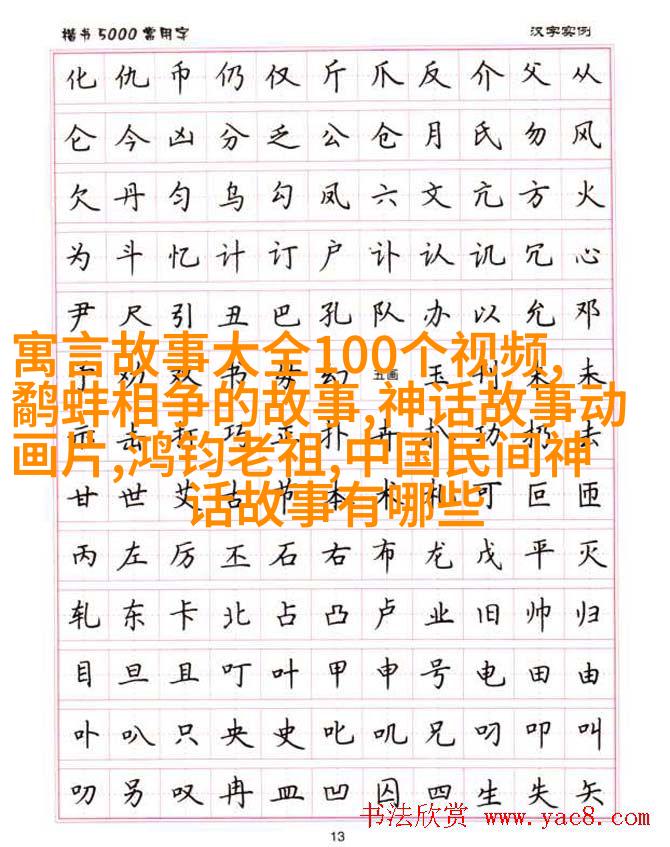 楷书5000常用字
汉字实例
化仇币仍仅斤爪反介父从
仑今凶分乏公仓月氏勿风
欠丹匀乌勾凤六文亢方火
为斗忆计订户讣认讥冗心
尹尺引丑巴孔队办以允邓
寓言故事大全100个视频,
五画
鹬蚌相争的故事,神话故事动
画片,鸿钧老祖,中国民间神
话故事有哪些
甘世艾古节本术札可叵匝
丙左厉丕石右布龙戊平灭
轧东卡北占凸卢业旧帅归
目旦且叮叶甲申号电田由
卟叭只央史叱叽兄叼叩叫
叻另叹冉皿凹囚四生失矢
书法欣赏 www.yac8.com
13